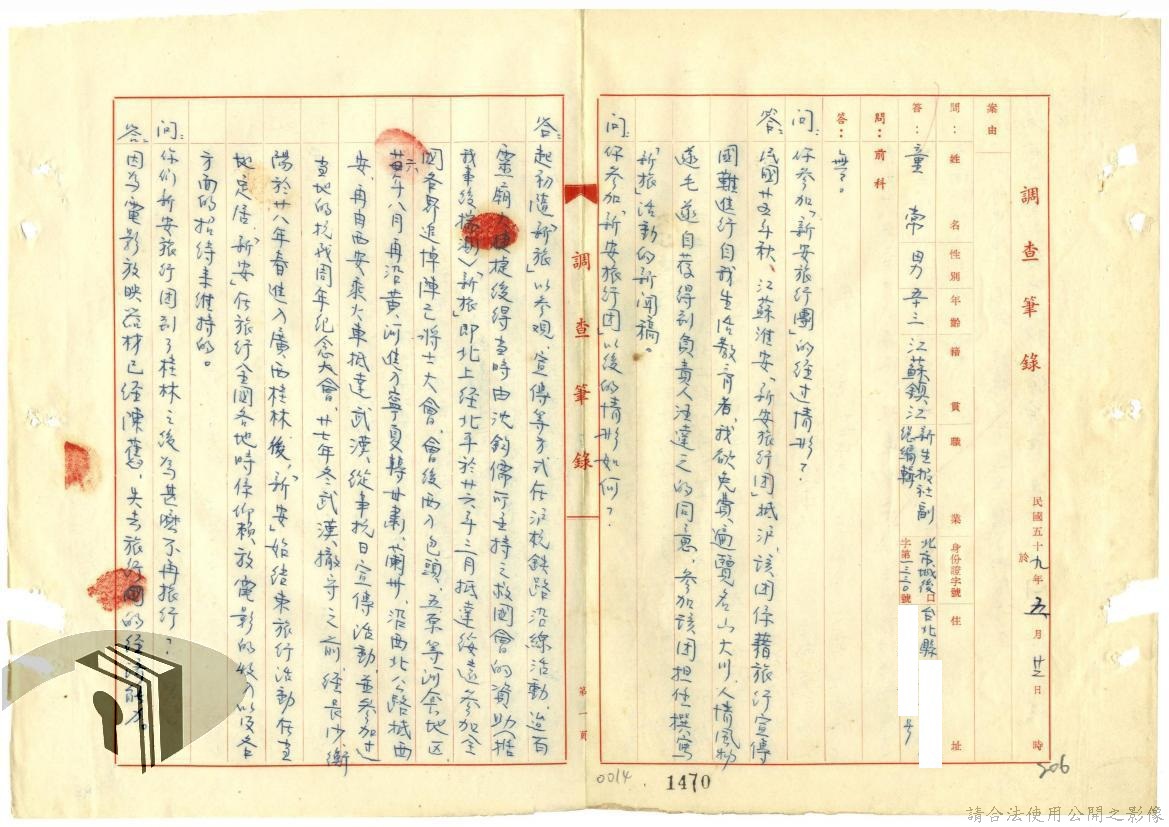 調查筆錄
民國五十九年五月廿二日時
於
案由
問：姓名性別年齡籍貫職業身份證字號住址
答：童常 男 五十三 江蘇鎮江 新生報社副總編輯 北市城後口字第一三三〇號 台北縣 号
問：前科
答：無。
問：你參加「新安旅行團」的经过情形？
答：民國廿五年秋、江蘇淮安「新安旅行团」抵沪，该团係藉旅行宣傳
國難進行自我生活教育者，我欲免費遍覽名山大川、人情風物
遂毛遂自荐得到負責人汪達之的同意，參加该团担任撰寫
「新旅」活動的新聞稿。
問：你參加「新安旅行团」以後的情形如何？
調查筆錄
第一頁
答：起初隨「新旅」以参观、宣傳等方式在沪杭鉄路沿線活動，迨百
靈廟大捷後得当時由沈鈞儒所主持之救國會的資助（據
我事後
「新旅」即北上经北平於廿六年三月抵達綏遠參加全
國各界追悼陣亡將士大會，會後西方包頭，五原等河套地区
六
廿年八月再沿黄河進方寧夏轉甘肅，蘭州，沿西北公路抵西
安，再由西安乘火車抵達武漢，從事抗日宣傳活動，並參加过
当地的抗战周年纪念大會，廿七年冬武漢撤守之前，经長沙、衡
陽於廿八年春進入廣西桂林後，「新安」始结束旅行活動在当
地定居，「新安」在旅行全國各地時係仰賴放電影的收入以及各
方面的招待来維持的。
問：你们新安旅行团到了桂林之後為甚麼不再旅行？
答：因為電影放映器材已经陳舊，失去旅行團的经济能力。
0014
1470
206
請合法使用公開之影像